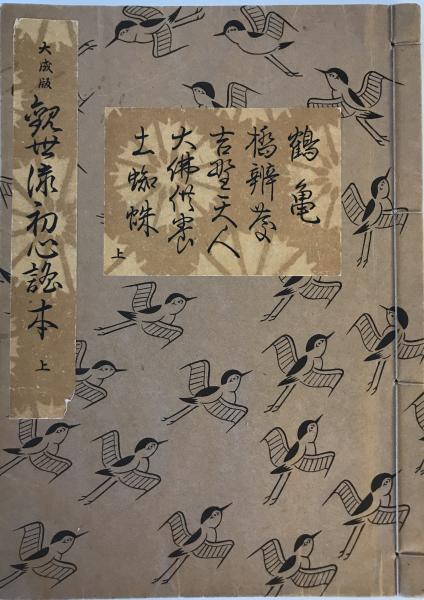 大成版
觀世流初心謠本
上
鶴亀
橋辨慶
吉野天人
大佛供養
土蜘蛛
上